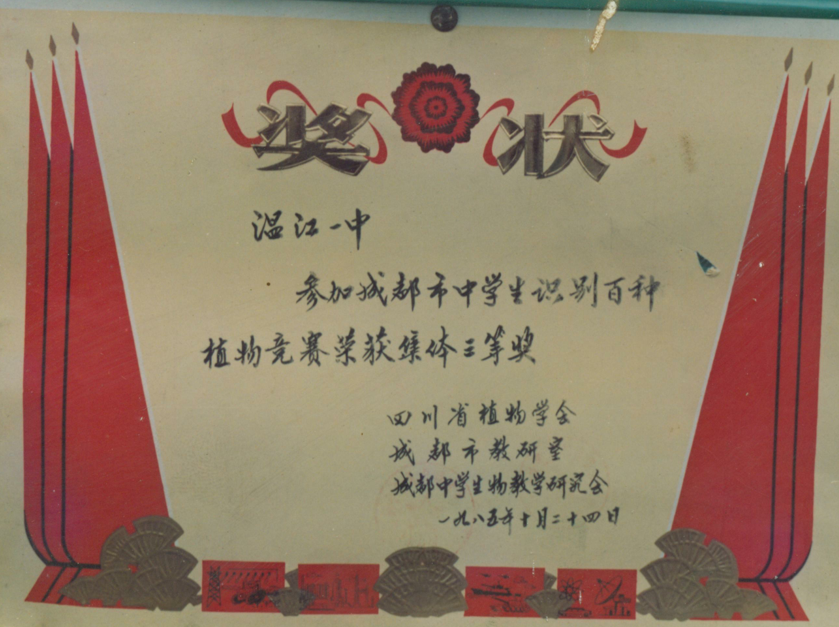 奖状
温江一中
参加成都市中学生识别百种
植物竞赛荣获集体三等奖
四川省植物学会
成都市教研室
成都中学生物教学研究会
一九八五年十月二十四日